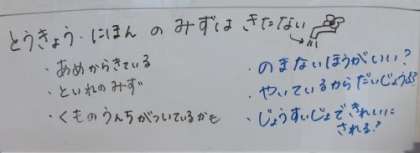 とうきょう・にほん の みずは きたない
・あめからきている
・といれのみず
・くものうんちがついているかも
・のまないほうがいい?
・やいているからだいじょうぶ?
・じょうすいじょできれいに
される?